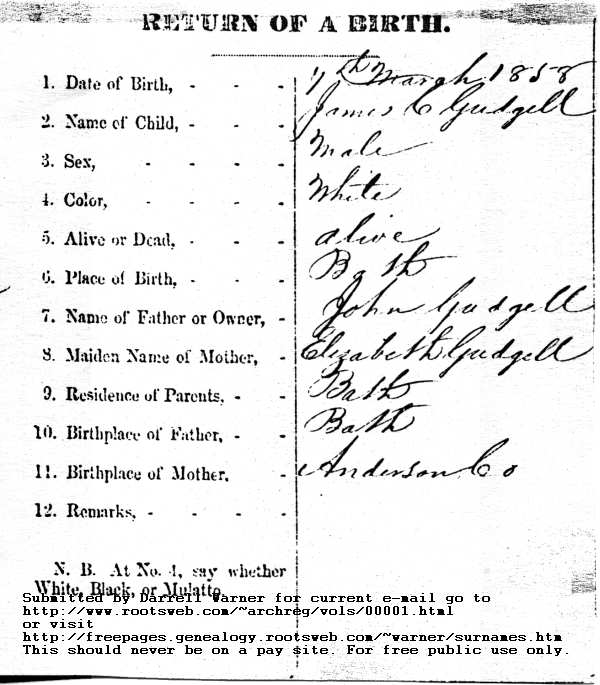 RETURN OF A BIRTH.
1. Date of Birth, - - - 7th March 1858
2. Name of Child, - - - James C Gudgell
3. Sex, - - - - Male
4. Color, - - - - White
5. Alive or Dead, - - - alive
6. Place of Birth, - - - Bath
7. Name of Father or Owner, - John Gudgell
8. Maiden Name of Mother, - Elizabeth Gudgell
9. Residence of Parents, - - Bath
10. Birthplace of Father, - - Bath
11. Birthplace of Mother. - Anderson Co
12. Remarks, - - - -
N. B. At No. 4, say whether
White, Black, or Mulatto.
Submitted by Darrell Warner for current e-mail go to
http://www.rootsweb.com/~archreg/vols/00001.html
or visit
http://freepages.genealogy.rootsweb.com/~warner/surnames.htm
This should never be on a pay site. For free public use only.